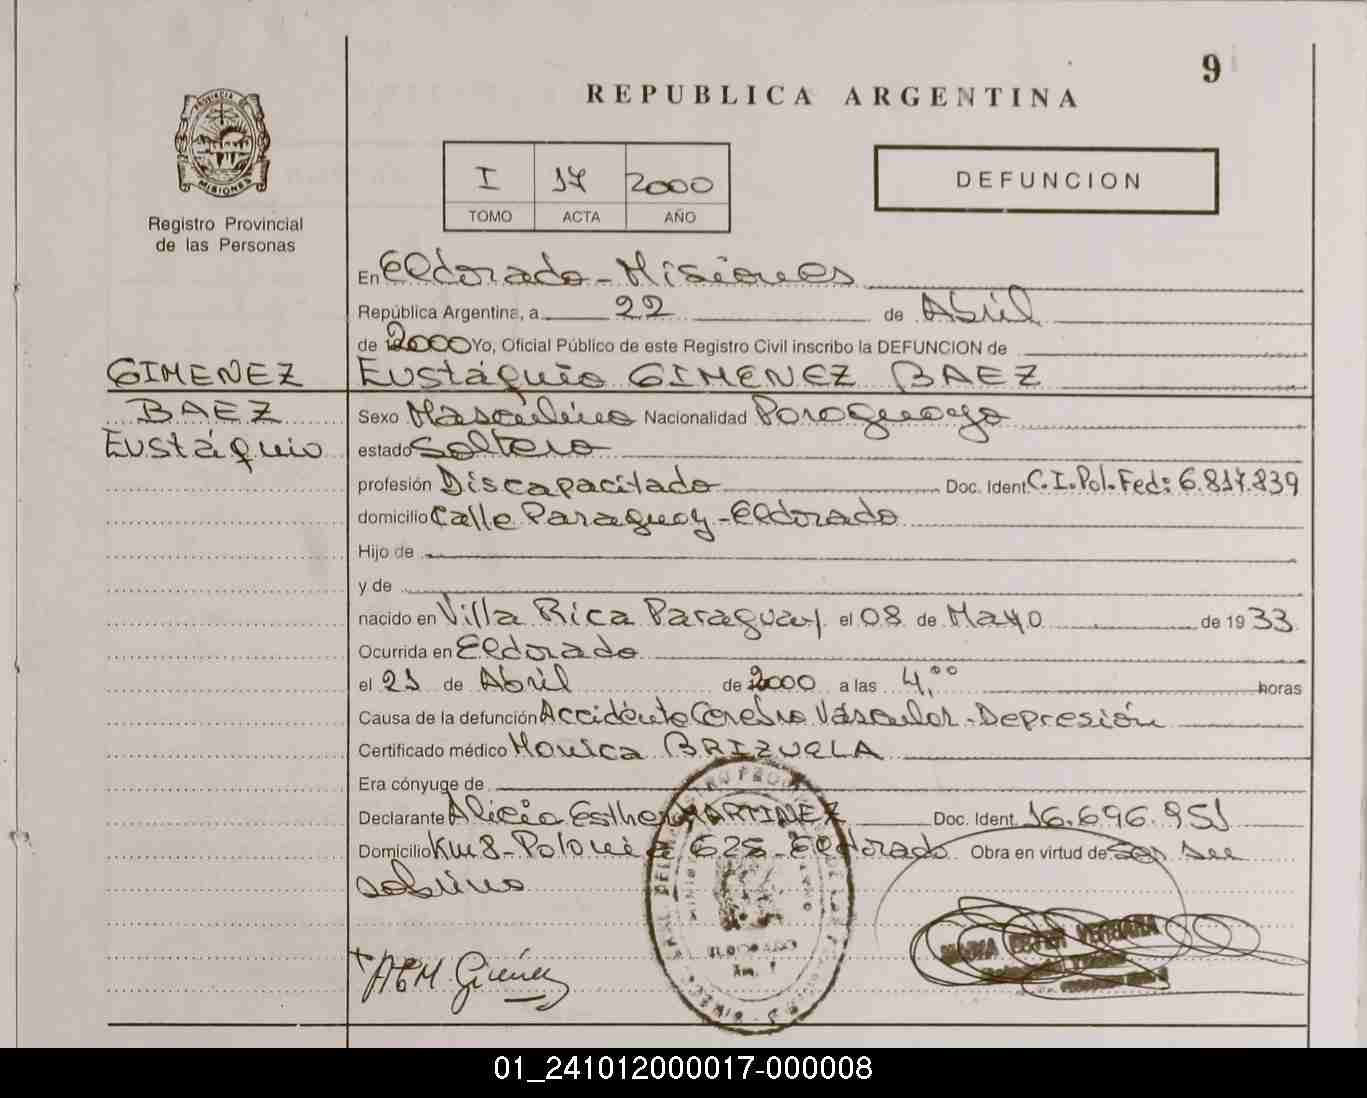 9
REPUBLICA ARGENTINA
PROVINCIA DE
MISIONES
Registro Provincial
de las Personas
I 17 2000
TOMO ACTA AÑO
DEFUNCION
En Eldorado - Misiones
República Argentina, a 22 de Abril
de 2000 Yo, Oficial Público de este Registro Civil inscribo la DEFUNCION de
GIMENEZ
BAEZ
Eustáquio
Eustáquio GIMENEZ BAEZ
Sexo Masculino Nacionalidad Paraguaya
estado Soltero
profesión Discapacitado Doc. Ident. C.I.Pol.Fed: 6.817.239
domicilio Calle Paraguay - Eldorado
Hijo de
y de
nacido en Villa Rica Paraguay el 08 de Mayo de 1933
Ocurrida en Eldorado
el 21 de Abril de 2000 a las 4,00 horas
Causa de la defunción Accidente Cerebro Vascular - Depresión
Certificado médico Monica BRIZUELA
Era cónyuge de
Declarante Alicia Esther MARTINEZ Doc. Ident. 16.696.951
Domicilio Km 8 - Polonia 625 - Eldorado Obra en virtud de Ser su
sobrino
ELDORADO
01_241012000017-000008